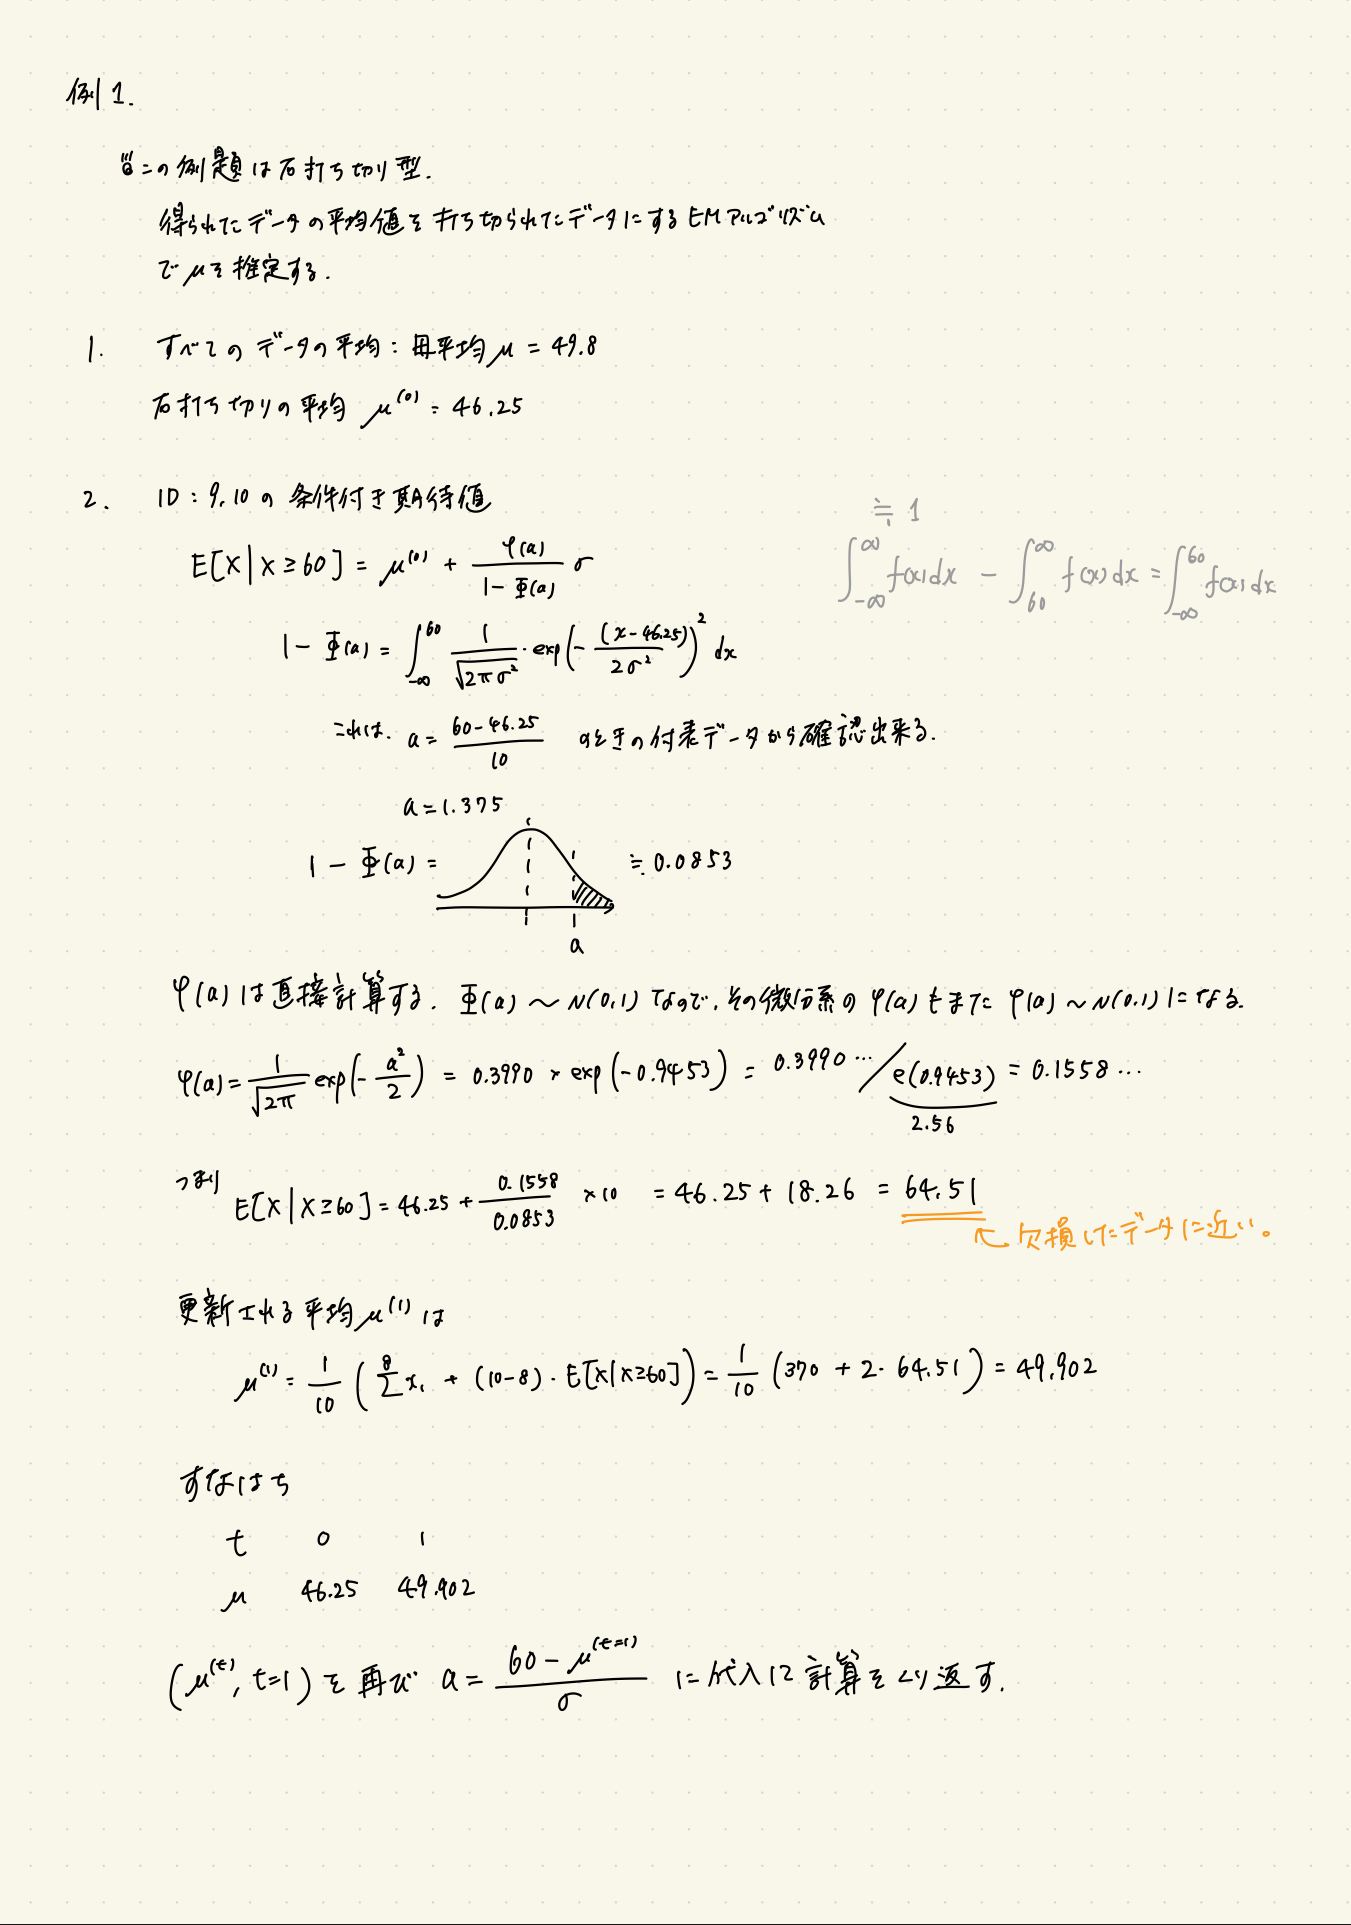 例1.
この例題は右打ち切り型.
得られたデータの平均値を打ち切られたデータにするEMアルゴリズム
でμを推定する.
1. すべてのデータの平均：母平均μ = 49.8
右打ち切りの平均 μ^(0) = 46.25
2. ID：9,10の条件付き期待値
E[X|X≥60] = μ^(0) + φ(a)/(1-Φ(a)) σ
≒ 1
∫_{-∞}^{∞} f(x)dx - ∫_{60}^{∞} f(x)dx = ∫_{-∞}^{60} f(x)dx
1-Φ(a) = ∫_{-∞}^{60} 1/√(2πσ²)・exp(-(x-46.25)/(2σ²))² dx
これは. a = (60-46.25)/10 のときの付表データから確認出来る.
a = 1.375
1-Φ(a) = ≒ 0.0853
a
φ(a)は直接計算する. Φ(a)～N(0,1)なので,その微分系のφ(a)もまたφ(a)～N(0,1)になる.
φ(a) = 1/√(2π) exp(-a²/2) = 0.3990 × exp(-0.9453) = 0.3990…/e(0.9453) = 0.1558…
2.56
つまり E[X|X≥60] = 46.25 + 0.1558/0.0853 ×10 = 46.25 + 18.26 = 64.51
欠損したデータに近い。
更新される平均μ^(1)は
μ^(1) = 1/10 (Σ^8 x_i + (10-8)・E[X|X≥60]) = 1/10 (370 + 2・64.51) = 49.902
すなはち
t 0 1
μ 46.25 49.902
(μ^(t), t=1)を再び a = (60-μ^(t=1))/σ に代入して計算をくり返す.